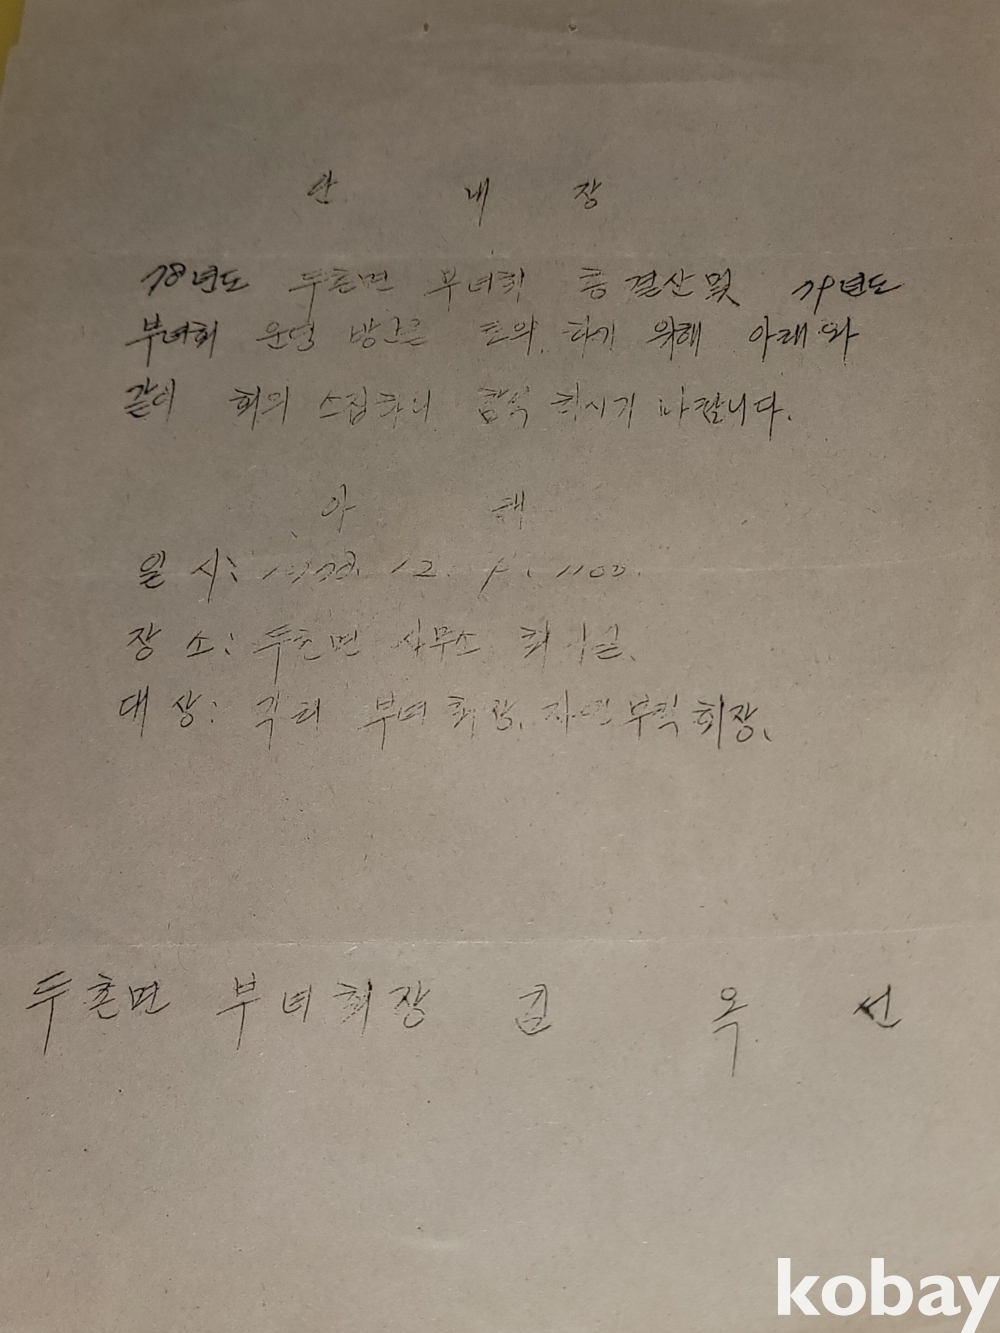 안 내 장
78년도 두촌면 부녀회 총결산 및 79년도
부녀회 운영 방안을 토의 하기 위해 아래와
같이 회의 소집하니 참석 하시기 바랍니다.
아 래
일시: 1978. 12. 1100.
장소: 두촌면 사무소 회의실.
대상: 각리 부녀회장, 자연부락 회장.
두촌면 부녀회장 김 옥 선
kobay